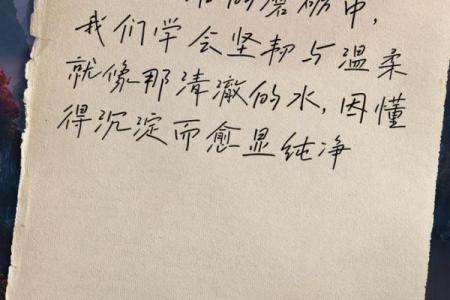 的磨砺中,
我们学会坚韧与温柔
就像那清澈的水,因懂
得沉淀而愈显纯净